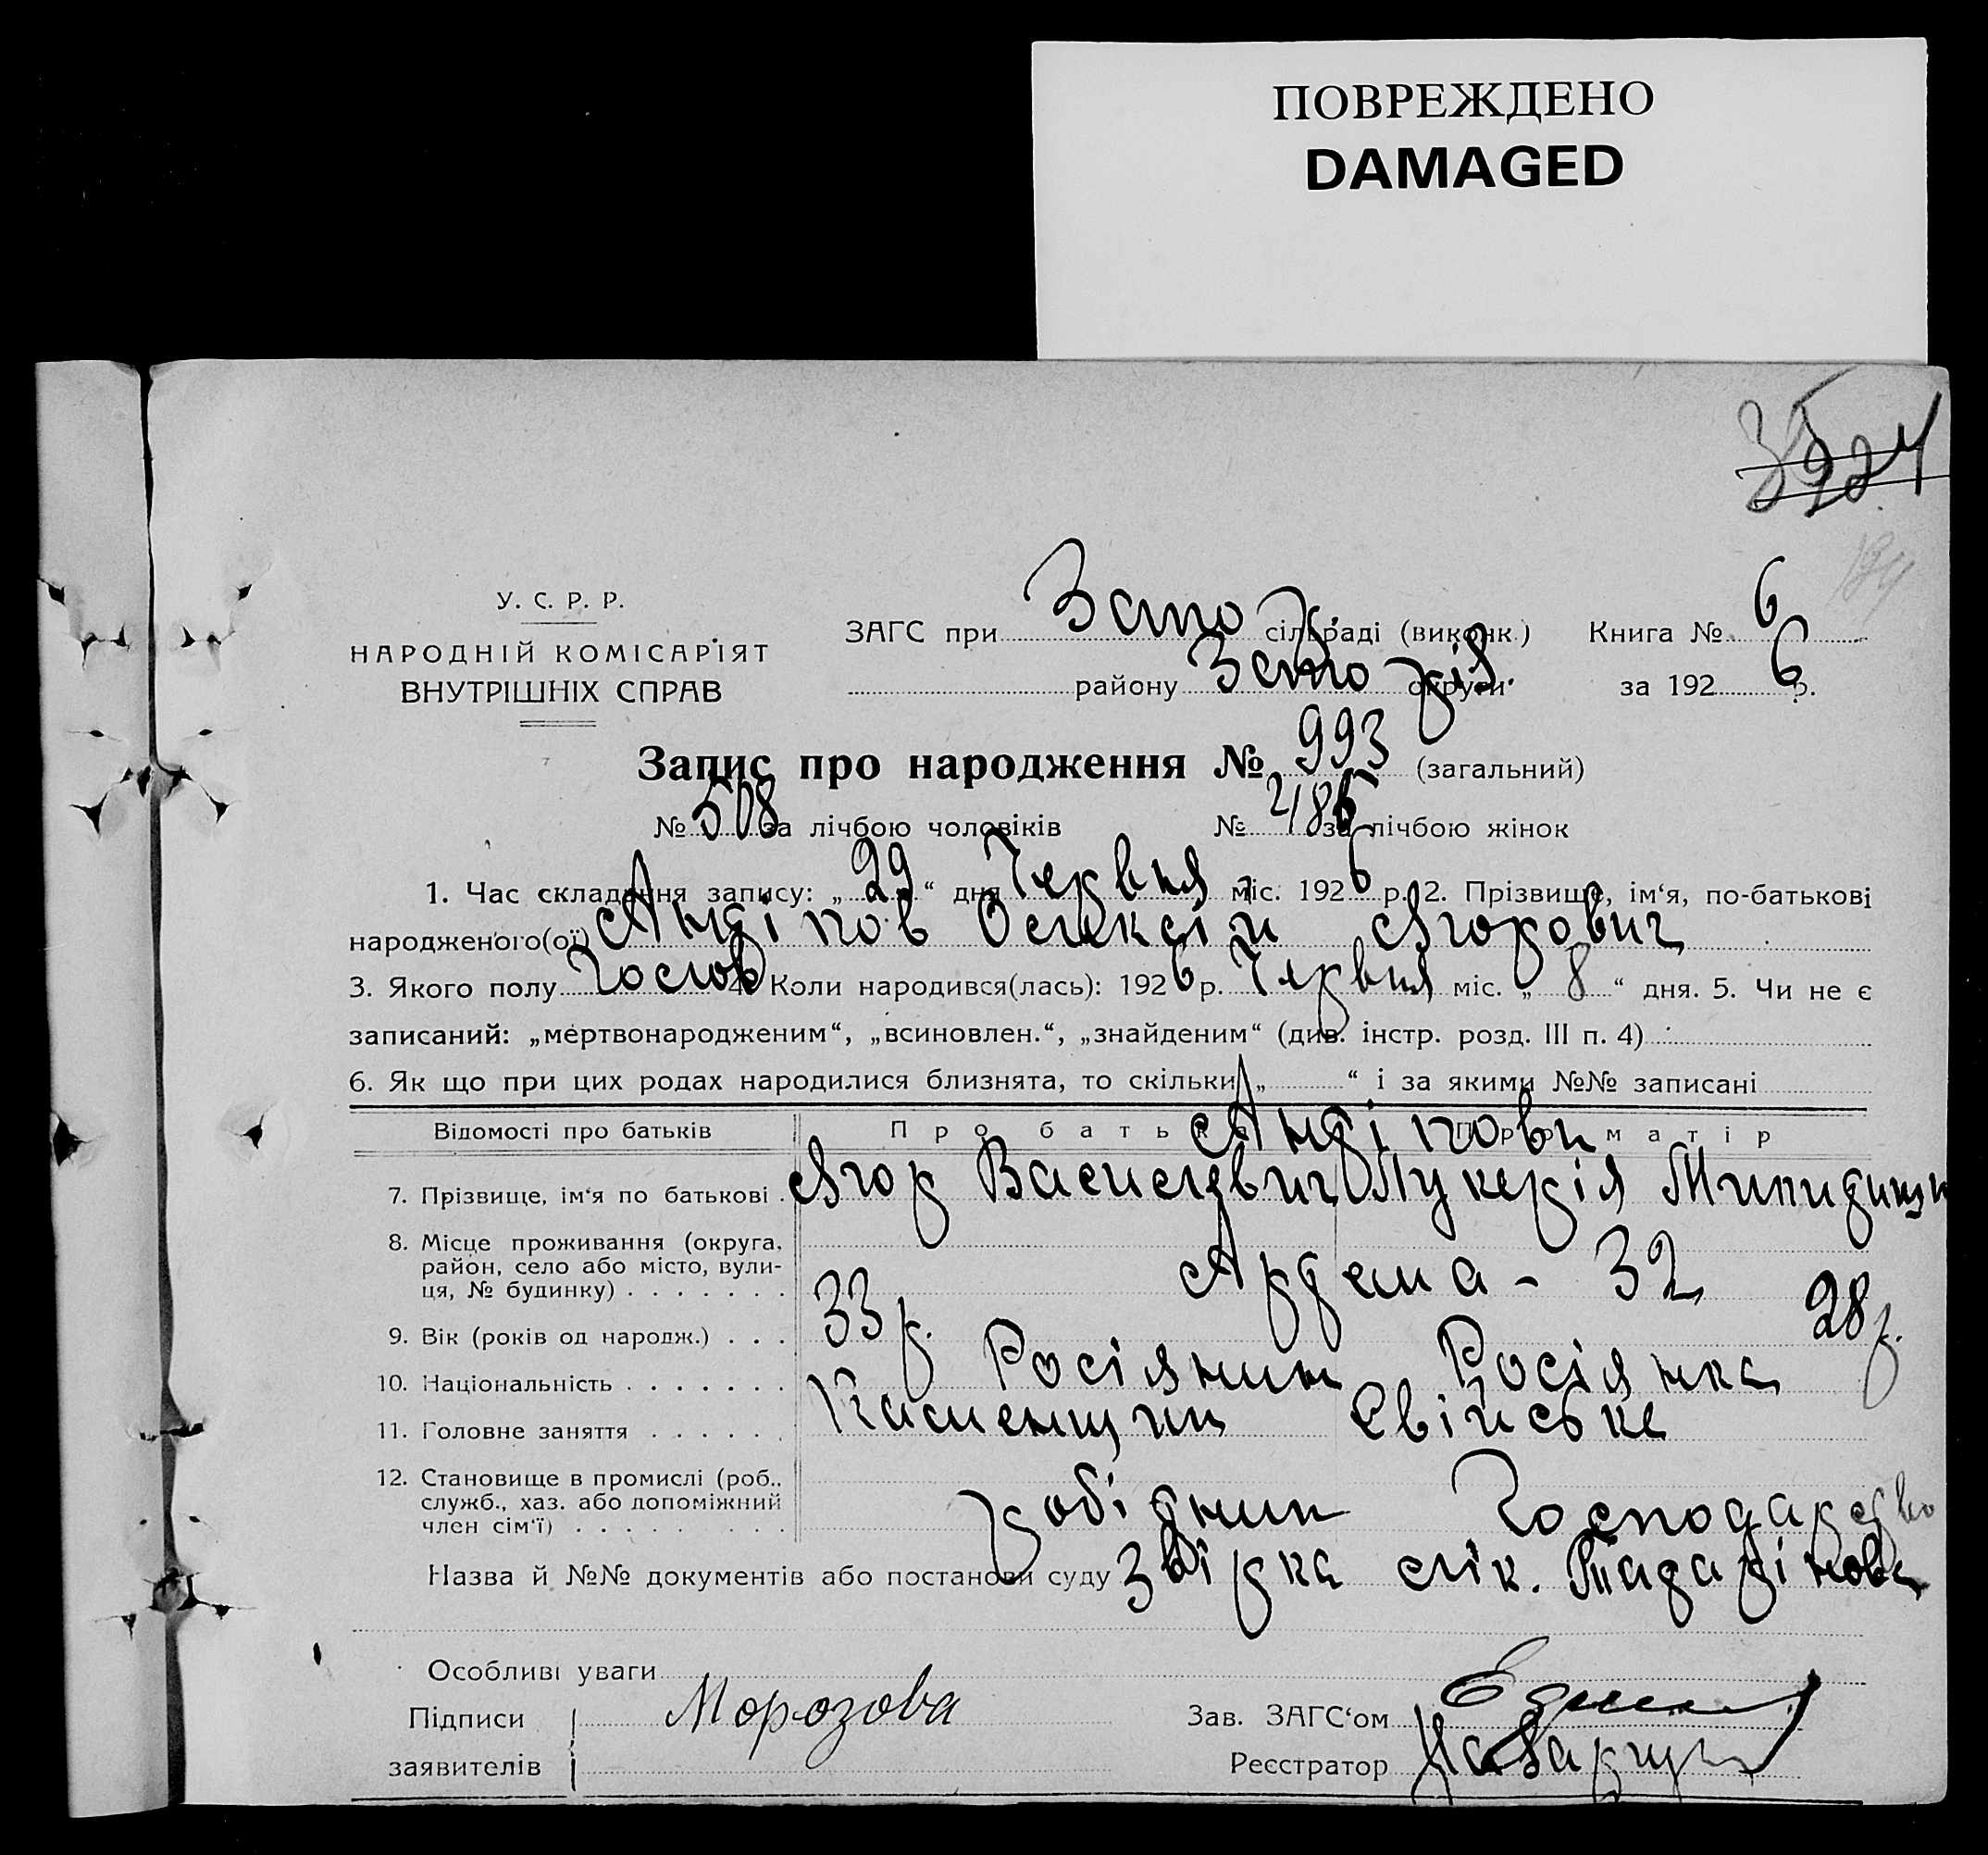 ПОВРЕЖДЕНО
DAMAGED
У. С. Р. Р.
НАРОДНІЙ КОМІСАР'ІЯТ
ВНУТРІШНІХ СПРАВ
ЗАГС при Запо сільраді (виконк.) Книга № 6
району Запоріз. округи за 1926 р.
Запис про народження № 993 (загальний)
№ 508 за лічбою чоловіків № 485 за лічбою жінок
1. Час складання запису: „29“ дня Червня міс. 1926 р. 2. Прізвище, ім'я, по-батькові
народженого(ої) Олексій Ягорович
3. Якого полу Чолов 4. Коли народився(лась): 1926 р. Червня міс. „8“ дня. 5. Чи не є
записаний: „мертвонародженим“, „всиновлен.“, „знайденим“ (див. інстр. розд. III п. 4)
6. Як що при цих родах народилися близнята, то скільки „ “ і за якими №№ записані
Відомості про батьків Про батька Про матір
7. Прізвище, ім'я по батькові Ягор Васильевич Лукерія
8. Місце проживання (округа, район, село або місто, вулиця, № будинку) Артема - 32
9. Вік (років од народж.) 33 р. 28 р.
10. Національність Росіянин Росіянка
11. Головне заняття Каменщик Свійське
12. Становище в промислі (роб., служб., хаз. або допоміжний член сім'ї) робітник Господарство
Назва й №№ документів або постанови суду Звірка лік.
Особливі уваги
Підписи Морозова Зав. ЗАГС'ом
заявителів Реєстратор